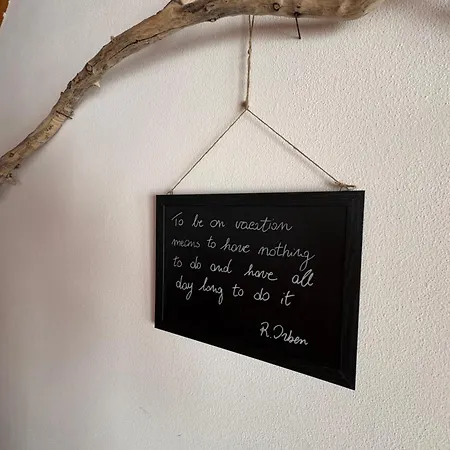 To be on vacation
means to have nothing
to do and have all
day long to do it
R. Orben